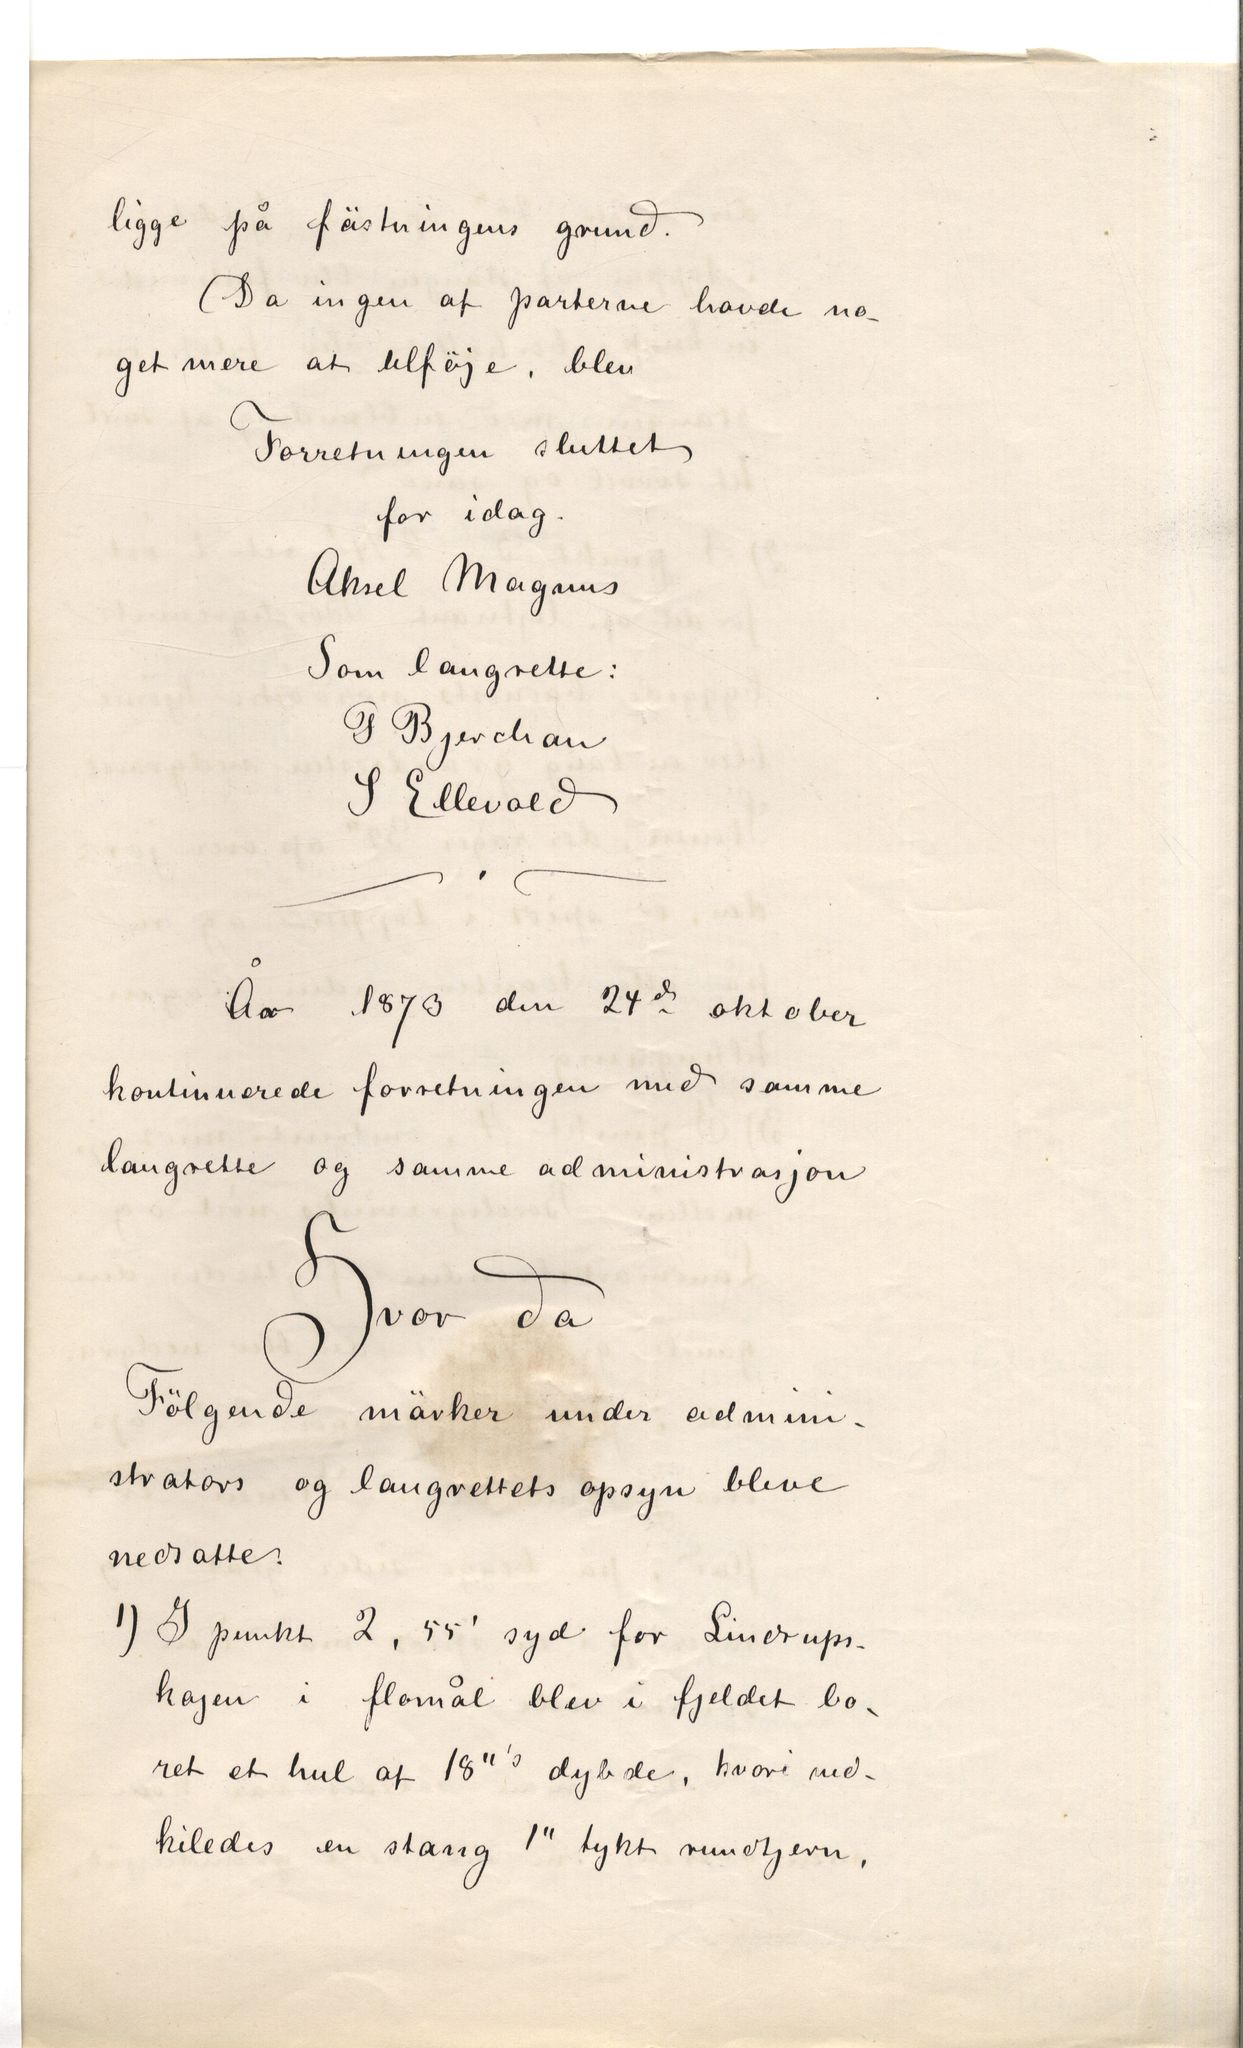 ligge på fästningens grund.
Da ingen af parterne havde no-
get mere at tilföje, blev
Forretningen sluttet
for idag.
Aksel Magnus
Som laugrette:
P Bjerchan
S Ellevold
År 1873 den 24d oktober
kontinuerede forretningen med samme
laugrette og samme administrasjon
Hvor da
Fölgende märker under admini-
strators og laugrettets opsyn bleve
nedsatte:
1) I punkt 2, 55' syd for Lindrups-
kajen i flomål blev i fjeldet bo-
ret et hul af 18"'s dybde, hvori ned-
kiledes en stang 1" tykt rundtjern,